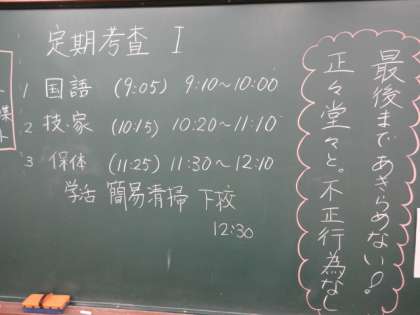 定期考査 I
1 国語 (9:05) 9:10～10:00
2 技・家 (10:15) 10:20～11:10
3 保体 (11:25) 11:30～12:10
学活 簡易清掃 下校
12:30
最後まであきらめない!
正々堂々と。不正行為なし